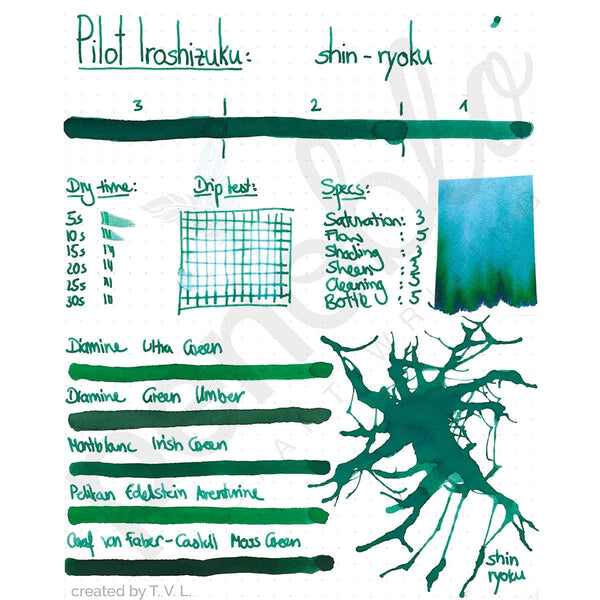 Pilot Iroshizuku: shin-ryoku
3 2 1
Dry time:
5s
10s
15s
20s
25s
30s
Drip test:
Specs:
Saturation: 3
Flow : 5
Shading :
Sheen :
Cleaning : 5
Bottle : 5
Diamine Ultra Green
Diamine Green Umber
Montblanc Irish Green
Pelikan Edelstein Aventurine
Graf von Faber-Castell Moss Green
shin
ryoku
created by T. V. L.